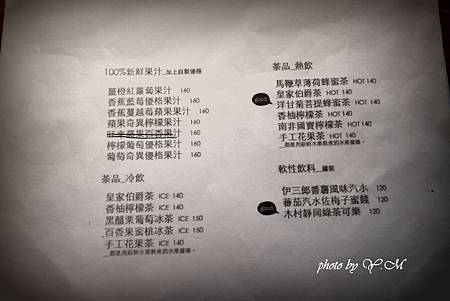 100%新鮮果汁_加上自製優格
薑橙紅蘿蔔果汁 160
香蕉藍莓優格果汁 160
香蕉蔓越莓蘋果果汁 160
蘋果奇異檸檬果汁 160
旺來蘋果百香果汁
檸檬葡萄優格果汁 160
葡萄奇異優格果汁 160
茶品_冷飲
皇家伯爵茶 ICE 140
香柚檸檬茶 ICE 140
黑醋栗葡萄冰茶 ICE 150
百香果蜜桃冰茶 ICE 150
手工花果茶 ICE 140
_都是用新鮮水果熬煮的水果醬唷。
茶品_熱飲
馬鞭草薄荷蜂蜜茶 HOT 140
皇家伯爵茶 HOT 140
good
洋甘菊菩提蜂蜜茶 HOT 140
香柚檸檬茶 HOT 140
南非國寶檸檬茶 HOT 140
手工花果茶 HOT 140
_都是用新鮮水果熬煮的水果醬唷。
軟性飲料_罐裝
伊三郎番薯風味汽水 120
蕃茄汽水佐梅子蜜餞 120
good
木村靜岡綠茶可樂 120
photo by Y.M